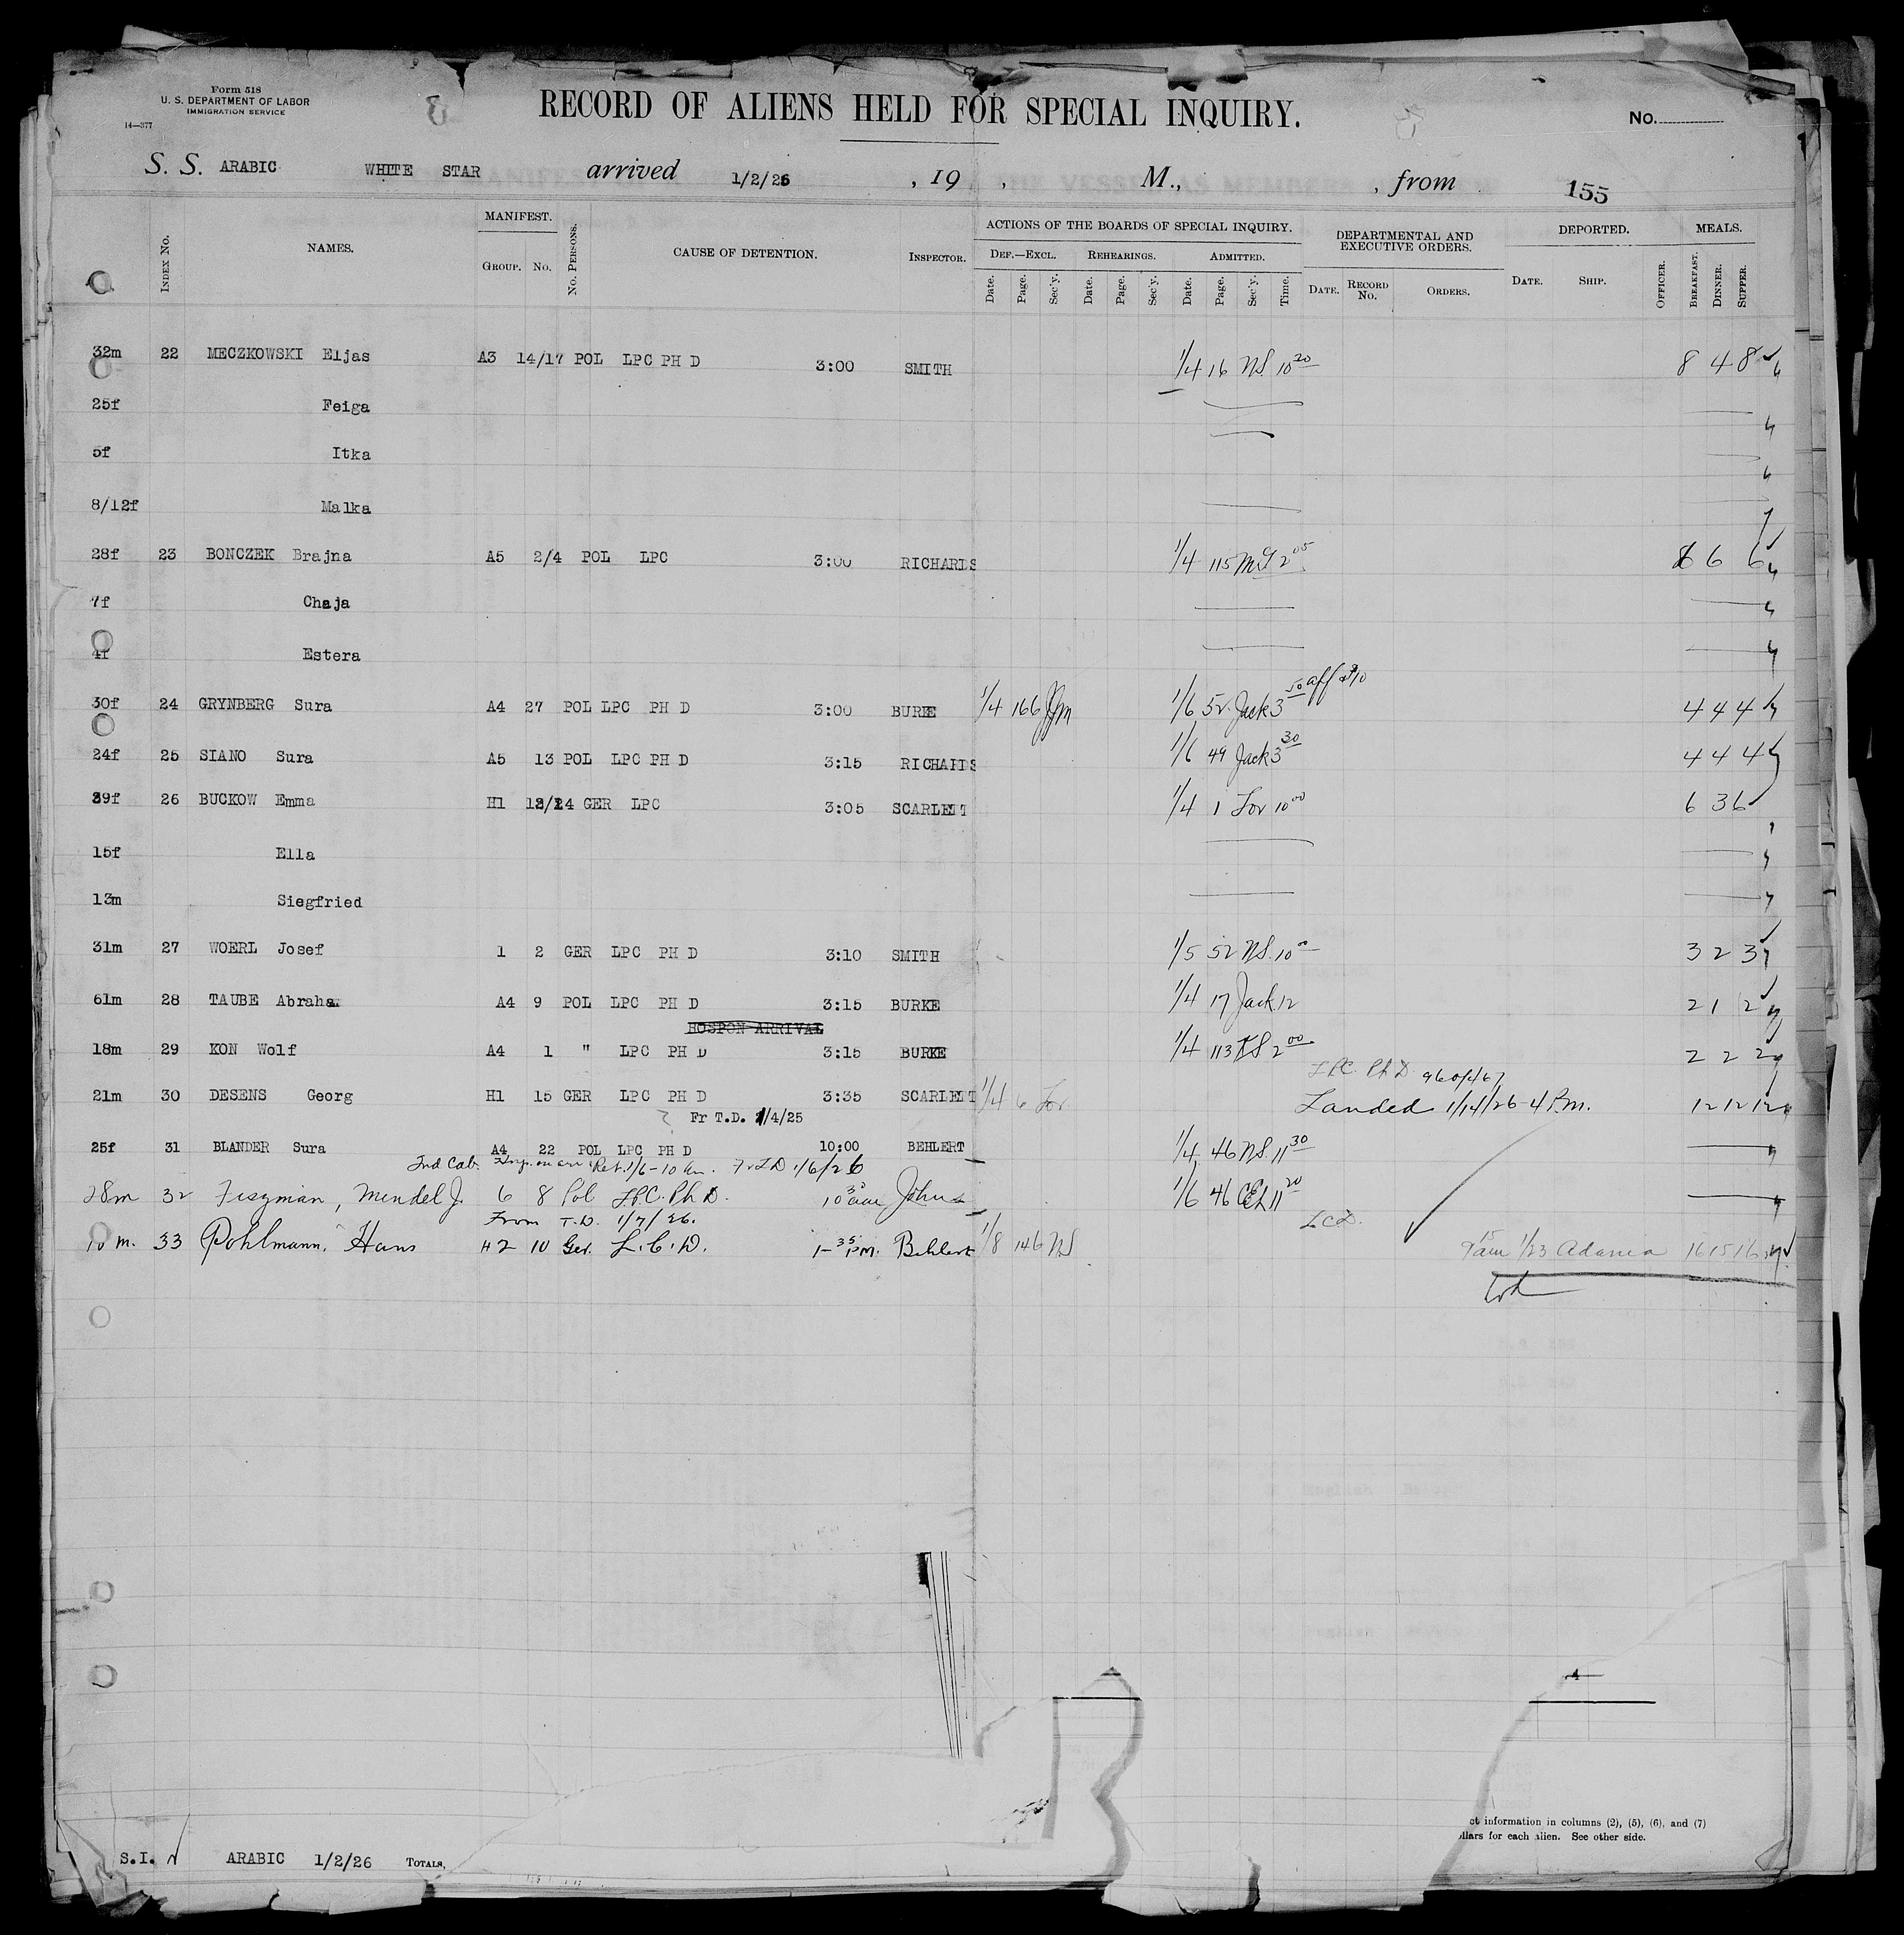 Form 518
U. S. DEPARTMENT OF LABOR
IMMIGRATION SERVICE
14—377
RECORD OF ALIENS HELD FOR SPECIAL INQUIRY.
No.
S. S. ARABIC WHITE STAR arrived 1/2/26 , 19 , M., , from 155
INDEX No. NAMES. MANIFEST. GROUP. No. No. PERSONS. CAUSE OF DETENTION. INSPECTOR. ACTIONS OF THE BOARDS OF SPECIAL INQUIRY. DEF.—EXCL. Date. Page. Sec'y. REHEARINGS. Date. Page. Sec'y. ADMITTED. Date. Page. Sec'y. Time. DEPARTMENTAL AND EXECUTIVE ORDERS. DATE. RECORD No. ORDERS. DEPORTED. DATE. SHIP. OFFICER. MEALS. BREAKFAST. DINNER. SUPPER.
32m 22 MECZKOWSKI Eljas A3 14/17 POL LPC PH D 3:00 SMITH 1/4 16 NS 10 20 8 4 8
25f Feiga
5f Itka
8/12f Malka
28f 23 BONCZEK Brajna A5 2/4 POL LPC 3:00 RICHARDS 1/4 115 2 05 6 6 6
7f Chaja
4f Estera
30f 24 GRYNBERG Sura A4 27 POL LPC PH D 3:00 BURKE 1/4 166 1/6 52 Jack 3 50 aff 4 4 4
24f 25 SIANO Sura A5 13 POL LPC PH D 3:15 RICHARDS 1/6 49 Jack 3 30 4 4 4
39f 26 BUCKOW Emma H1 12/14 GER LPC 3:05 SCARLETT 1/4 1 For 10 00 6 3 6
15f Ella
13m Siegfried
31m 27 WOERL Josef 1 2 GER LPC PH D 3:10 SMITH 1/5 52 NS 10 3 2 3
61m 28 TAUBE Abraha A4 9 POL LPC PH D 3:15 BURKE 1/4 17 Jack 12 2 1 2
HOSPON ARRIVAL
18m 29 KON Wolf A4 1 " LPC PH D 3:15 BURKE 1/4 113 2 00 2 2 2
LPC Ph D
21m 30 DESENS Georg H1 15 GER LPC PH D 3:35 SCARLETT 1/4 6 For Landed 1/14/26-4 P.M. 12 12 12
Fr T.D. 1/4/25
25f 31 BLANDER Sura A4 22 POL LPC PH D 10:00 BEHLERT 1/4 46 NS 11 30
2nd Cab. Ret. 1/6-10 am. Fr T D 1/6/26
28m 32 Fiszman, Mendel J. 6 8 Pol L.P.C. Ph D. 10 30 am Johns 1/6 46 11 20
From T.D. 1/7/26. LCD.
33 Pohlmann, Hans H2 10 Ger. L.C.D. 1-35 PM. Behlert 1/8 146 NS 9 15 am 1/23 Adania 16 15 16
A
ct information in columns (2), (5), (6), and (7)
ollars for each alien. See other side.
S.I. ARABIC 1/2/26 TOTALS,